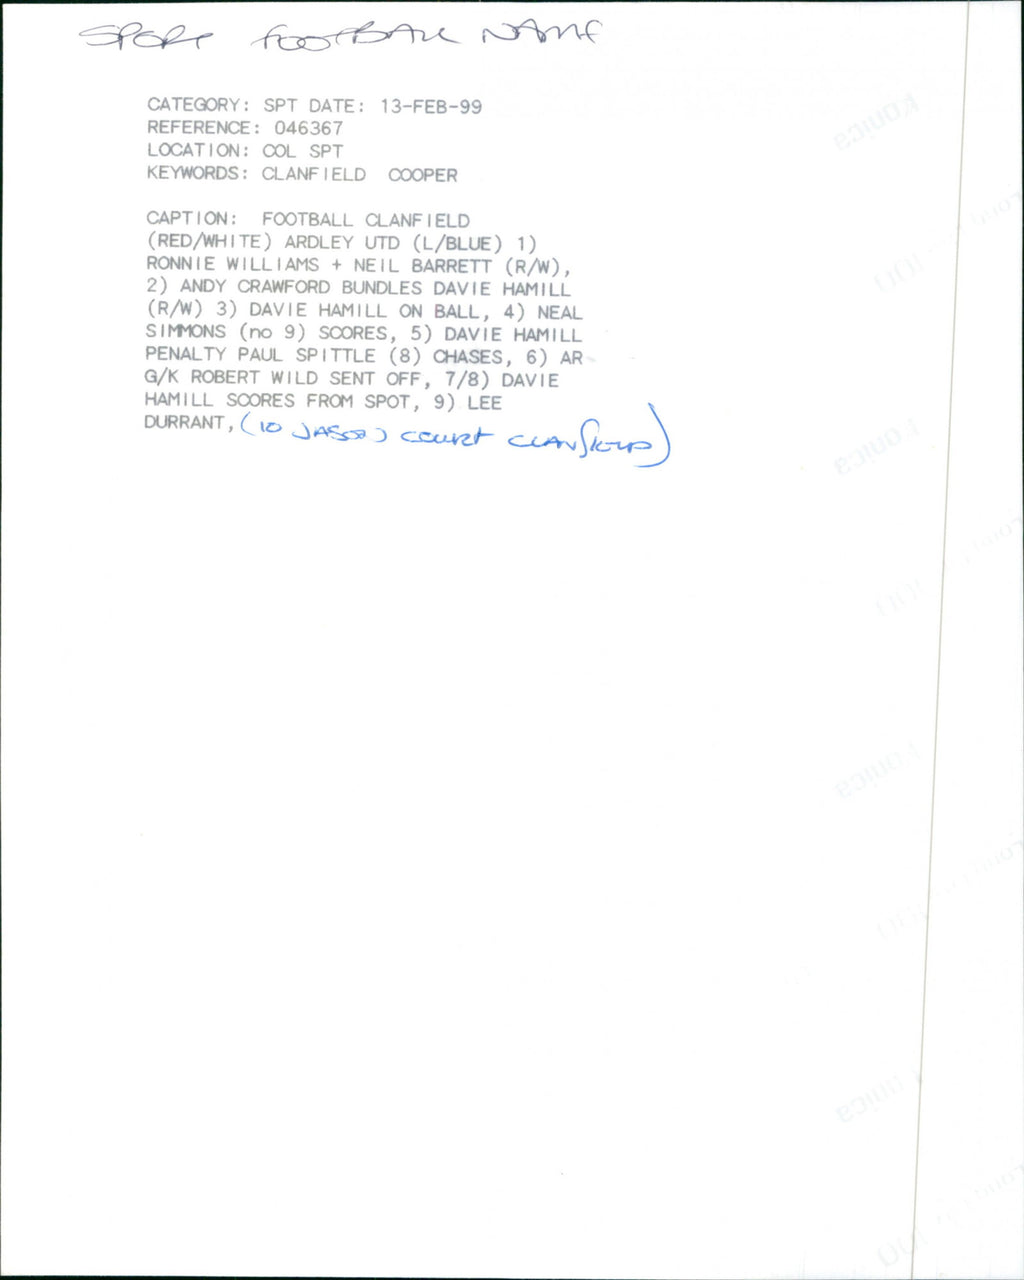 SPORT FOOTBALL NAME
CATEGORY: SPT DATE: 13-FEB-99
REFERENCE: 046367
LOCATION: COL SPT
KEYWORDS: CLANFIELD COOPER
CAPTION: FOOTBALL CLANFIELD
(RED/WHITE) ARDLEY UTD (L/BLUE) 1)
RONNIE WILLIAMS + NEIL BARRETT (R/W),
2) ANDY CRAWFORD BUNDLES DAVIE HAMILL
(R/W) 3) DAVIE HAMILL ON BALL, 4) NEAL
SIMMONS (no 9) SCORES, 5) DAVIE HAMILL
PENALTY PAUL SPITTLE (8) CHASES, 6) AR
G/K ROBERT WILD SENT OFF, 7/8) DAVIE
HAMILL SCORES FROM SPOT, 9) LEE
DURRANT, (10 JASON COURT CLANFIELD)
Konica
Konica
Konica
Konica